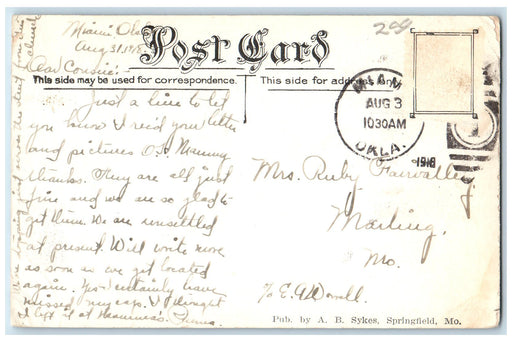 Post Card
This side may be used for correspondence.
This side for address only
Miami Okla
Aug 31, 1918.
Dear Cousin:-
Just a line to let
you know I rec'd your letter
and pictures O.K. Mammy
thanks. They are all just
fine and we are so glad to
get them. We are unsettled
at present. Will write more
as soon as we get located
again. Yes I certainly have
missed my cap. I thought
I left it at Mamma's.
MIAMI
AUG 3
1030AM
OKLA.
1918
Mrs. Ruby
Marling,
Mo.
Pub. by A. B. Sykes, Springfield, Mo.